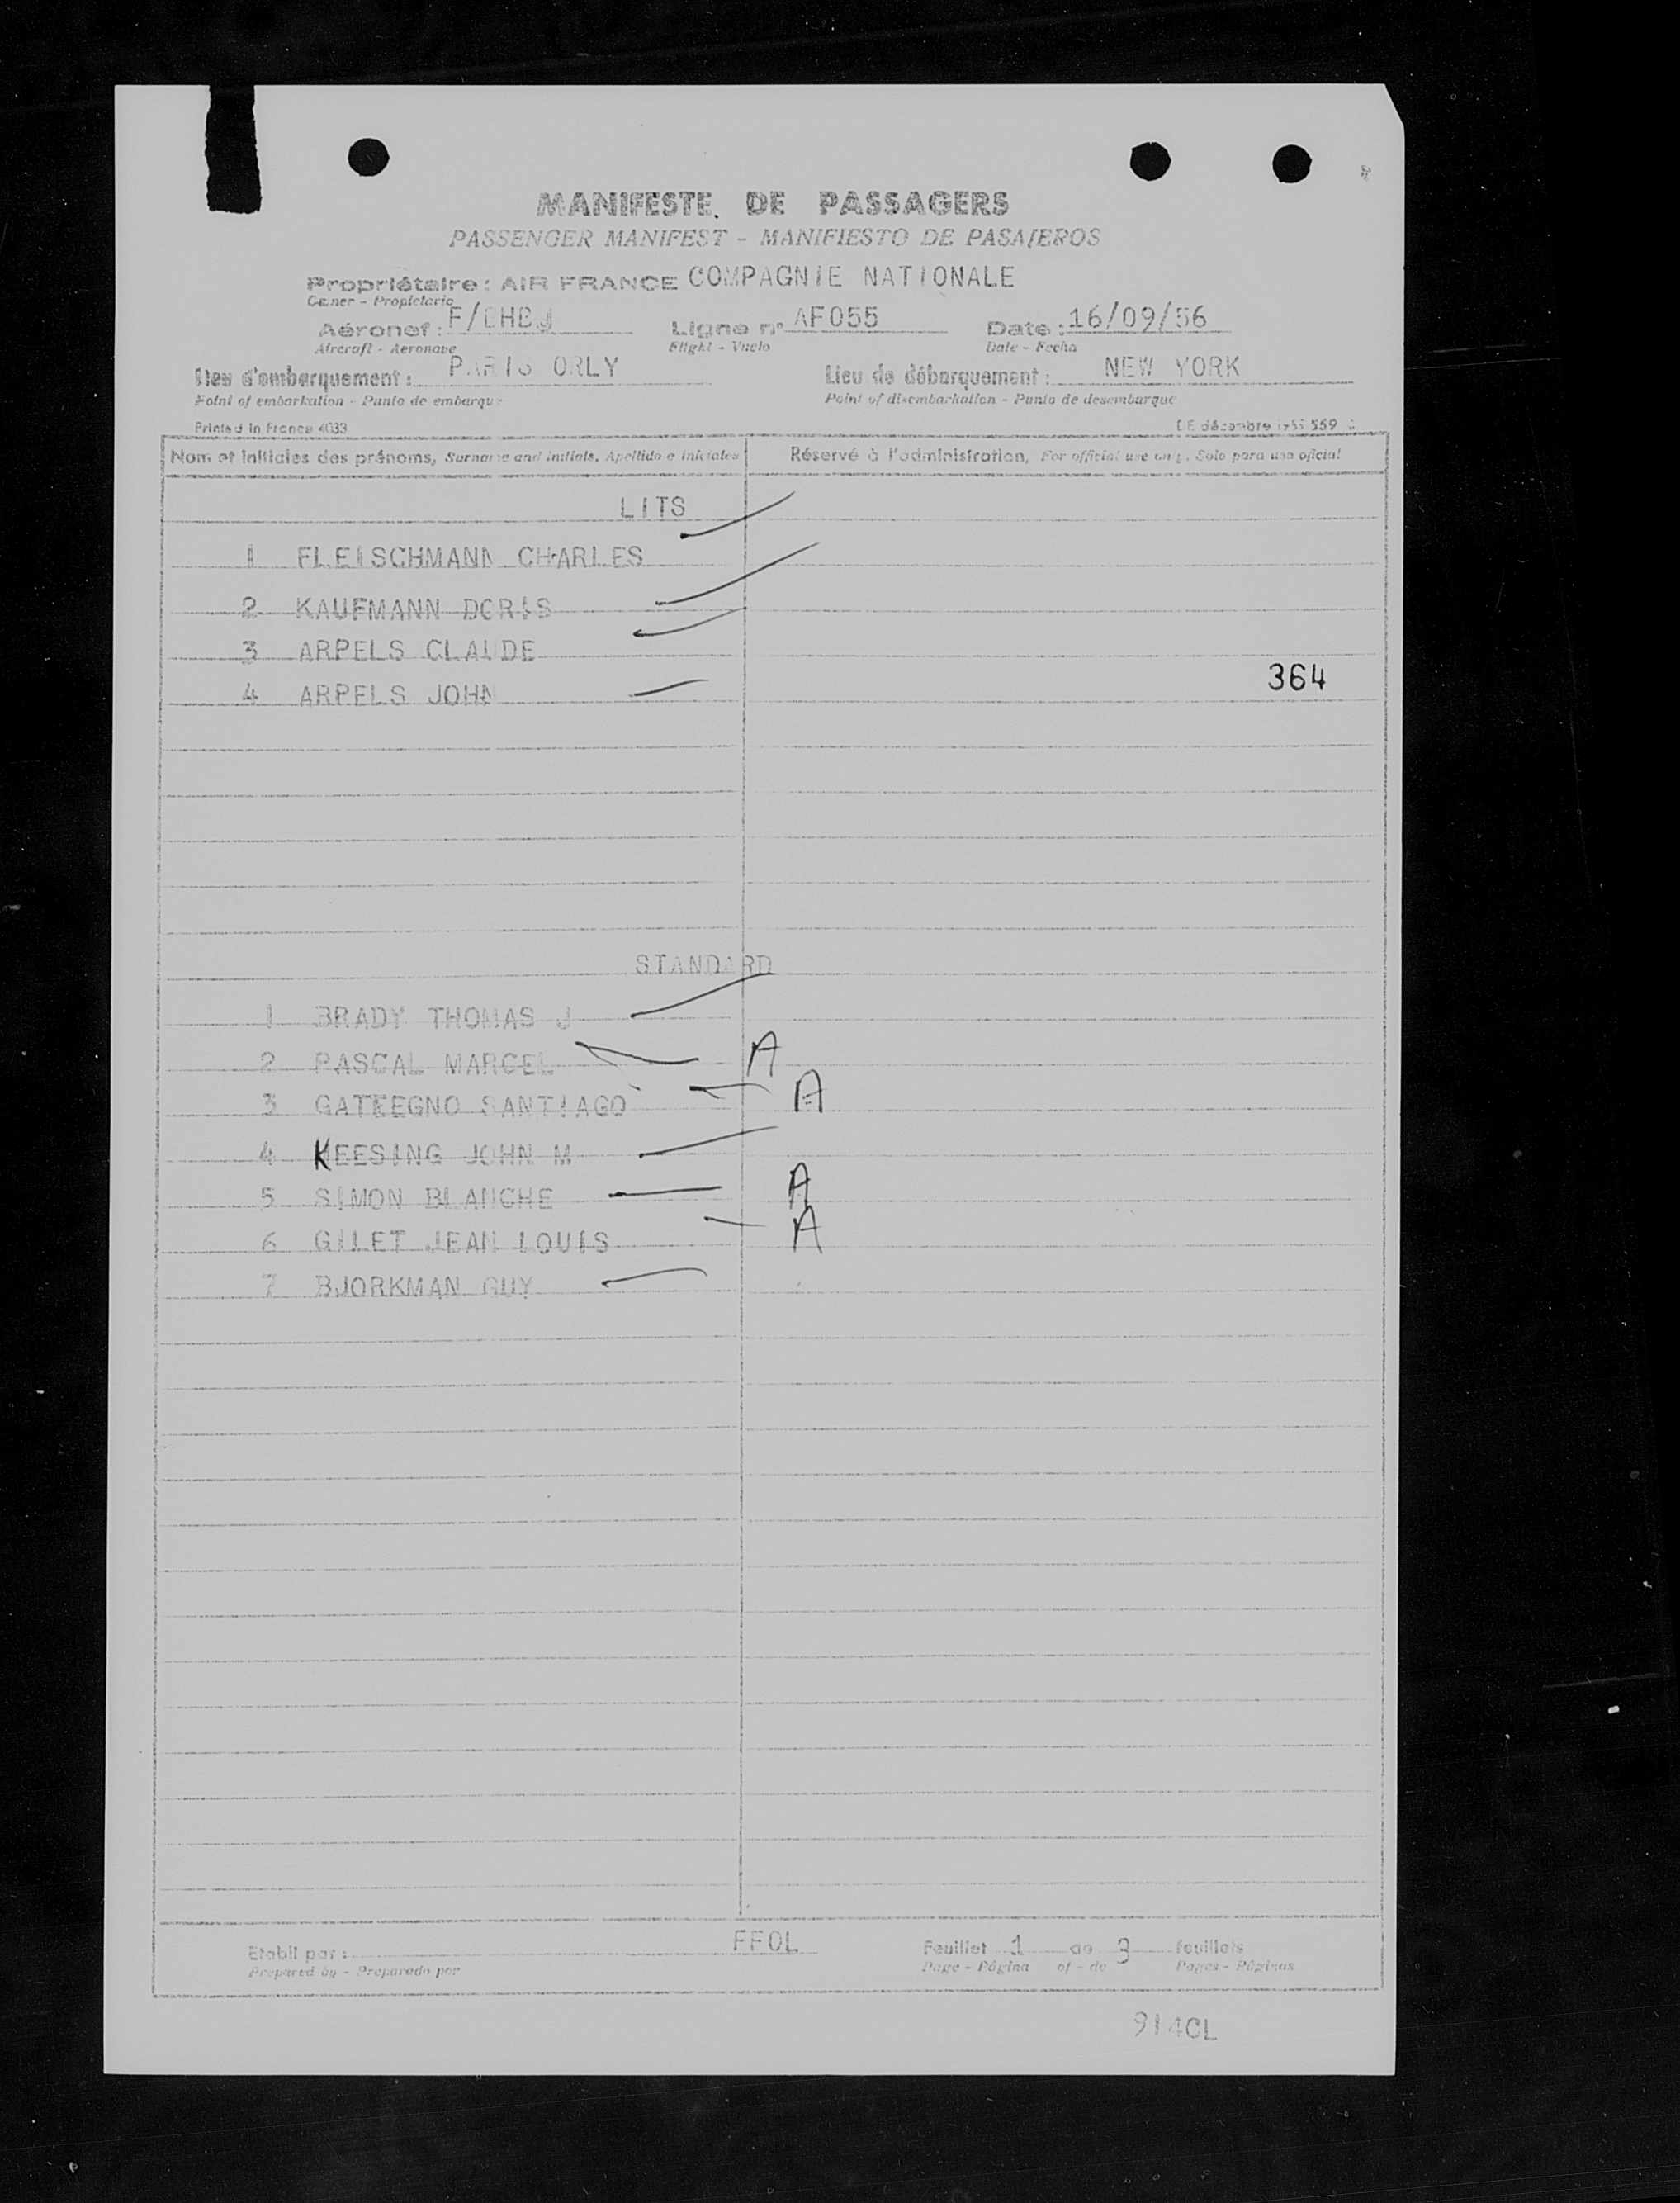 MANIFESTE DE PASSAGERS
PASSENGER MANIFEST - MANIFIESTO DE PASAJEROS
Propriétaire : AIR FRANCE COMPAGNIE NATIONALE
Owner - Propietario
Aéronef : F/BHBJ Ligne n° AF055 Date : 16/09/56
Aircraft - Aeronave Flight - Vuelo Date - Fecha
Lieu d'embarquement : PARIS ORLY Lieu de débarquement : NEW YORK
Point of embarkation - Punto de embarque Point of disembarkation - Punto de desembarque
Printed in France 4033 DE décembre 559
Nom et initiales des prénoms, Surname and initials, Apellido e iniciales Réservé à l'administration, For official use only. Solo para uso oficial
LITS
1 FLEISCHMANN CHARLES
2 KAUFMANN DORIS
3 ARPELS CLAUDE
4 ARPELS JOHN 364
STANDARD
1 BRADY THOMAS J
2 PASCAL MARCEL A
3 GATEEGNO SANTIAGO A
4 KEESING JOHN M
5 SIMON BLANCHE A
6 GILET JEAN LOUIS A
7 BJORKMAN GUY
Etabli par : FFOL Feuillet 1 de 3 feuillets
Prepared by - Preparado por Page - Página of - de Pages - Páginas
914CL